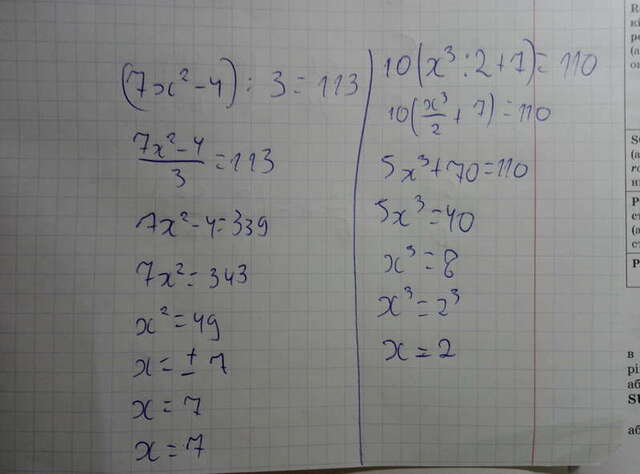 (7x² - 4) : 3 = 113
7x² - 4 / 3 = 113
7x² - 4 = 339
7x² = 343
x² = 49
x = ± 7
x = 7
x = 7
10(x³ : 2 + 7) = 110
10(x³/2 + 7) = 110
5x³ + 70 = 110
5x³ = 40
x³ = 8
x³ = 2³
x = 2